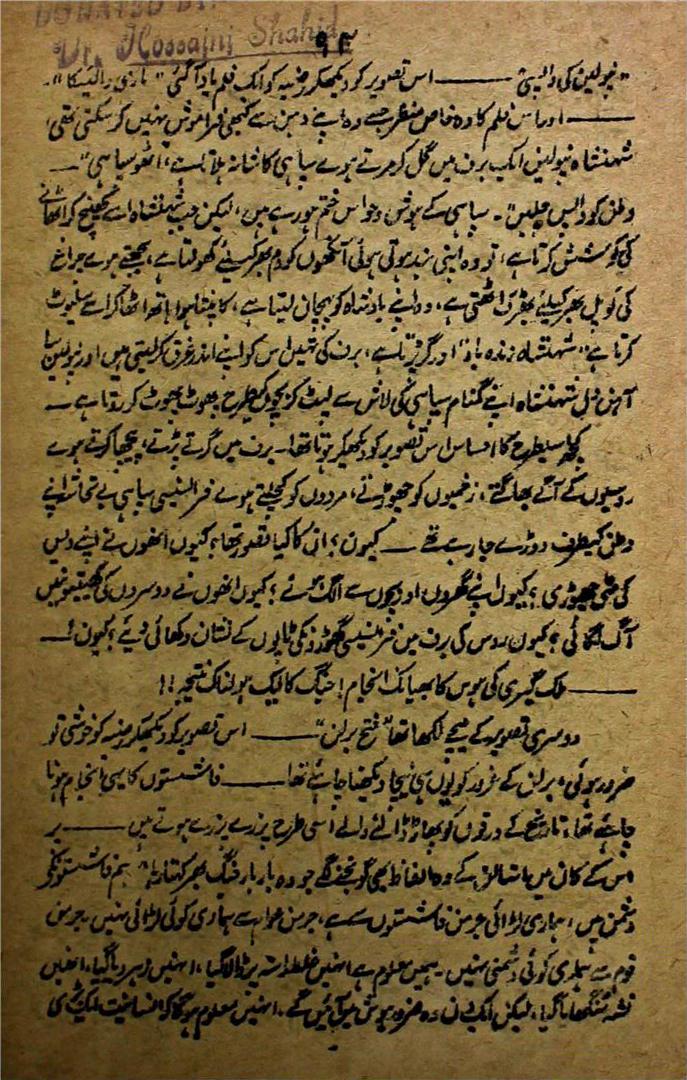 DONATED BY:
Dr. Hossaini Shahid
۹۴
"نپولین کی واپسی" ——— اس تصویر کو دیکھکر رضیہ کو ایک فلم یاد آ گئی "
——— اور اس فلم کا وہ خاص منظر جسے وہ اپنے ذہن سے کبھی فراموش نہیں کر سکتی تھی،
شہنشاہ نپولین ایک برف میں گل کر مرتے ہوے سپاہی کا شانہ ہلاتا ہے، اٹھو سپاہی" —
وطن کو واپس چلیں"۔ سپاہی کے ہوش و حواس ختم ہو رہے ہیں، لیکن جب شہنشاہ اسے کھینچ کر اٹھانے
کی کوشش کرتا ہے، تو وہ اپنی بند ہوتی ہوئی آنکھوں کو دم بھر کیلئے کھولتا ہے، بجھتے ہوے چراغ
کی لو پل بھر کیلئے بھڑک اٹھتی ہے، وہ اپنے بادشاہ کو پہچان لیتا ہے، کانپتا ہوا ہاتھ اٹھا کر اسے سلیوٹ
کرتا ہے "شہنشاہ زندہ باد" اور گر پڑتا ہے، برف کی تہیں اس کو اپنے اندر غرق کر لیتی ہیں اور نپولین سا
آہن دل شہنشاہ اپنے گمنام سپاہی کی لاش سے لپٹ کر بچوں کیطرح پھوٹ پھوٹ کر روتا ہے —
کچھ اسیطرح کا احساس اس تصویر کو دیکھکر ہوتا تھا۔ برف میں گرتے پڑتے، پیچھا کرتے ہوے
روسیوں کے آگے بھاگتے، زخمیوں کو چھوڑتے، مردوں کو کچلتے ہوے فرانسیسی سپاہی بے تحاشہ اپنے
وطن کیطرف دوڑے جا رہے تھے — کیوں؟ ان کا کیا قصور تھا؟ کیوں انھوں نے اپنے دیس
کی مٹی چھوڑی؟ کیوں اپنے گھروں اور بچوں سے الگ ہوئے؟ کیوں انھوں نے دوسروں کی کھیتیوں میں
آگ لگائی؟ کیوں روس کی برف میں فرانسیسی گھوڑونکی ٹاپوں کے نشان دکھائی دیئے؟ کیوں؟ —
——— ملک گیری کی ہوس کا بھیانک انجام! جنگ کا ایک ہولناک نتیجہ!!
دوسری تصویر کے نیچے لکھا تھا "فتح برلن" ——— اس تصویر کو دیکھکر رضیہ کو خوشی تو
ضرور ہوئی۔ برلن کے غرور کو یوں ہی نیچا دیکھنا چاہئے تھا ——— فاشستوں کا یہی انجام ہونا
چاہئے تھا، تاریخ کے ورقوں کو پھاڑ ڈالنے والے اسی طرح پرزے پرزے ہوتے ہیں ——— پر
اس کے کان میں اسٹالن کے وہ الفاظ بھی گونجنے لگے جو وہ بار بار جنگ بھر کہتا رہا "ہم فاشستونکے
دشمن ہیں، ہماری لڑائی جرمن فاشستوں سے ہے، جرمن عوام سے ہماری کوئی لڑائی نہیں۔ جرمن
قوم سے ہماری کوئی دشمنی نہیں۔ ہمیں معلوم ہے انہیں غلط راستہ پر ڈالا گیا، انہیں زہر دیا گیا، انھیں
نشہ سنگھایا گیا، لیکن ایک دن وہ ضرور ہوش میں آئیں گے۔ انہیں معلوم ہوگا کہ انسانیت ایک ہی